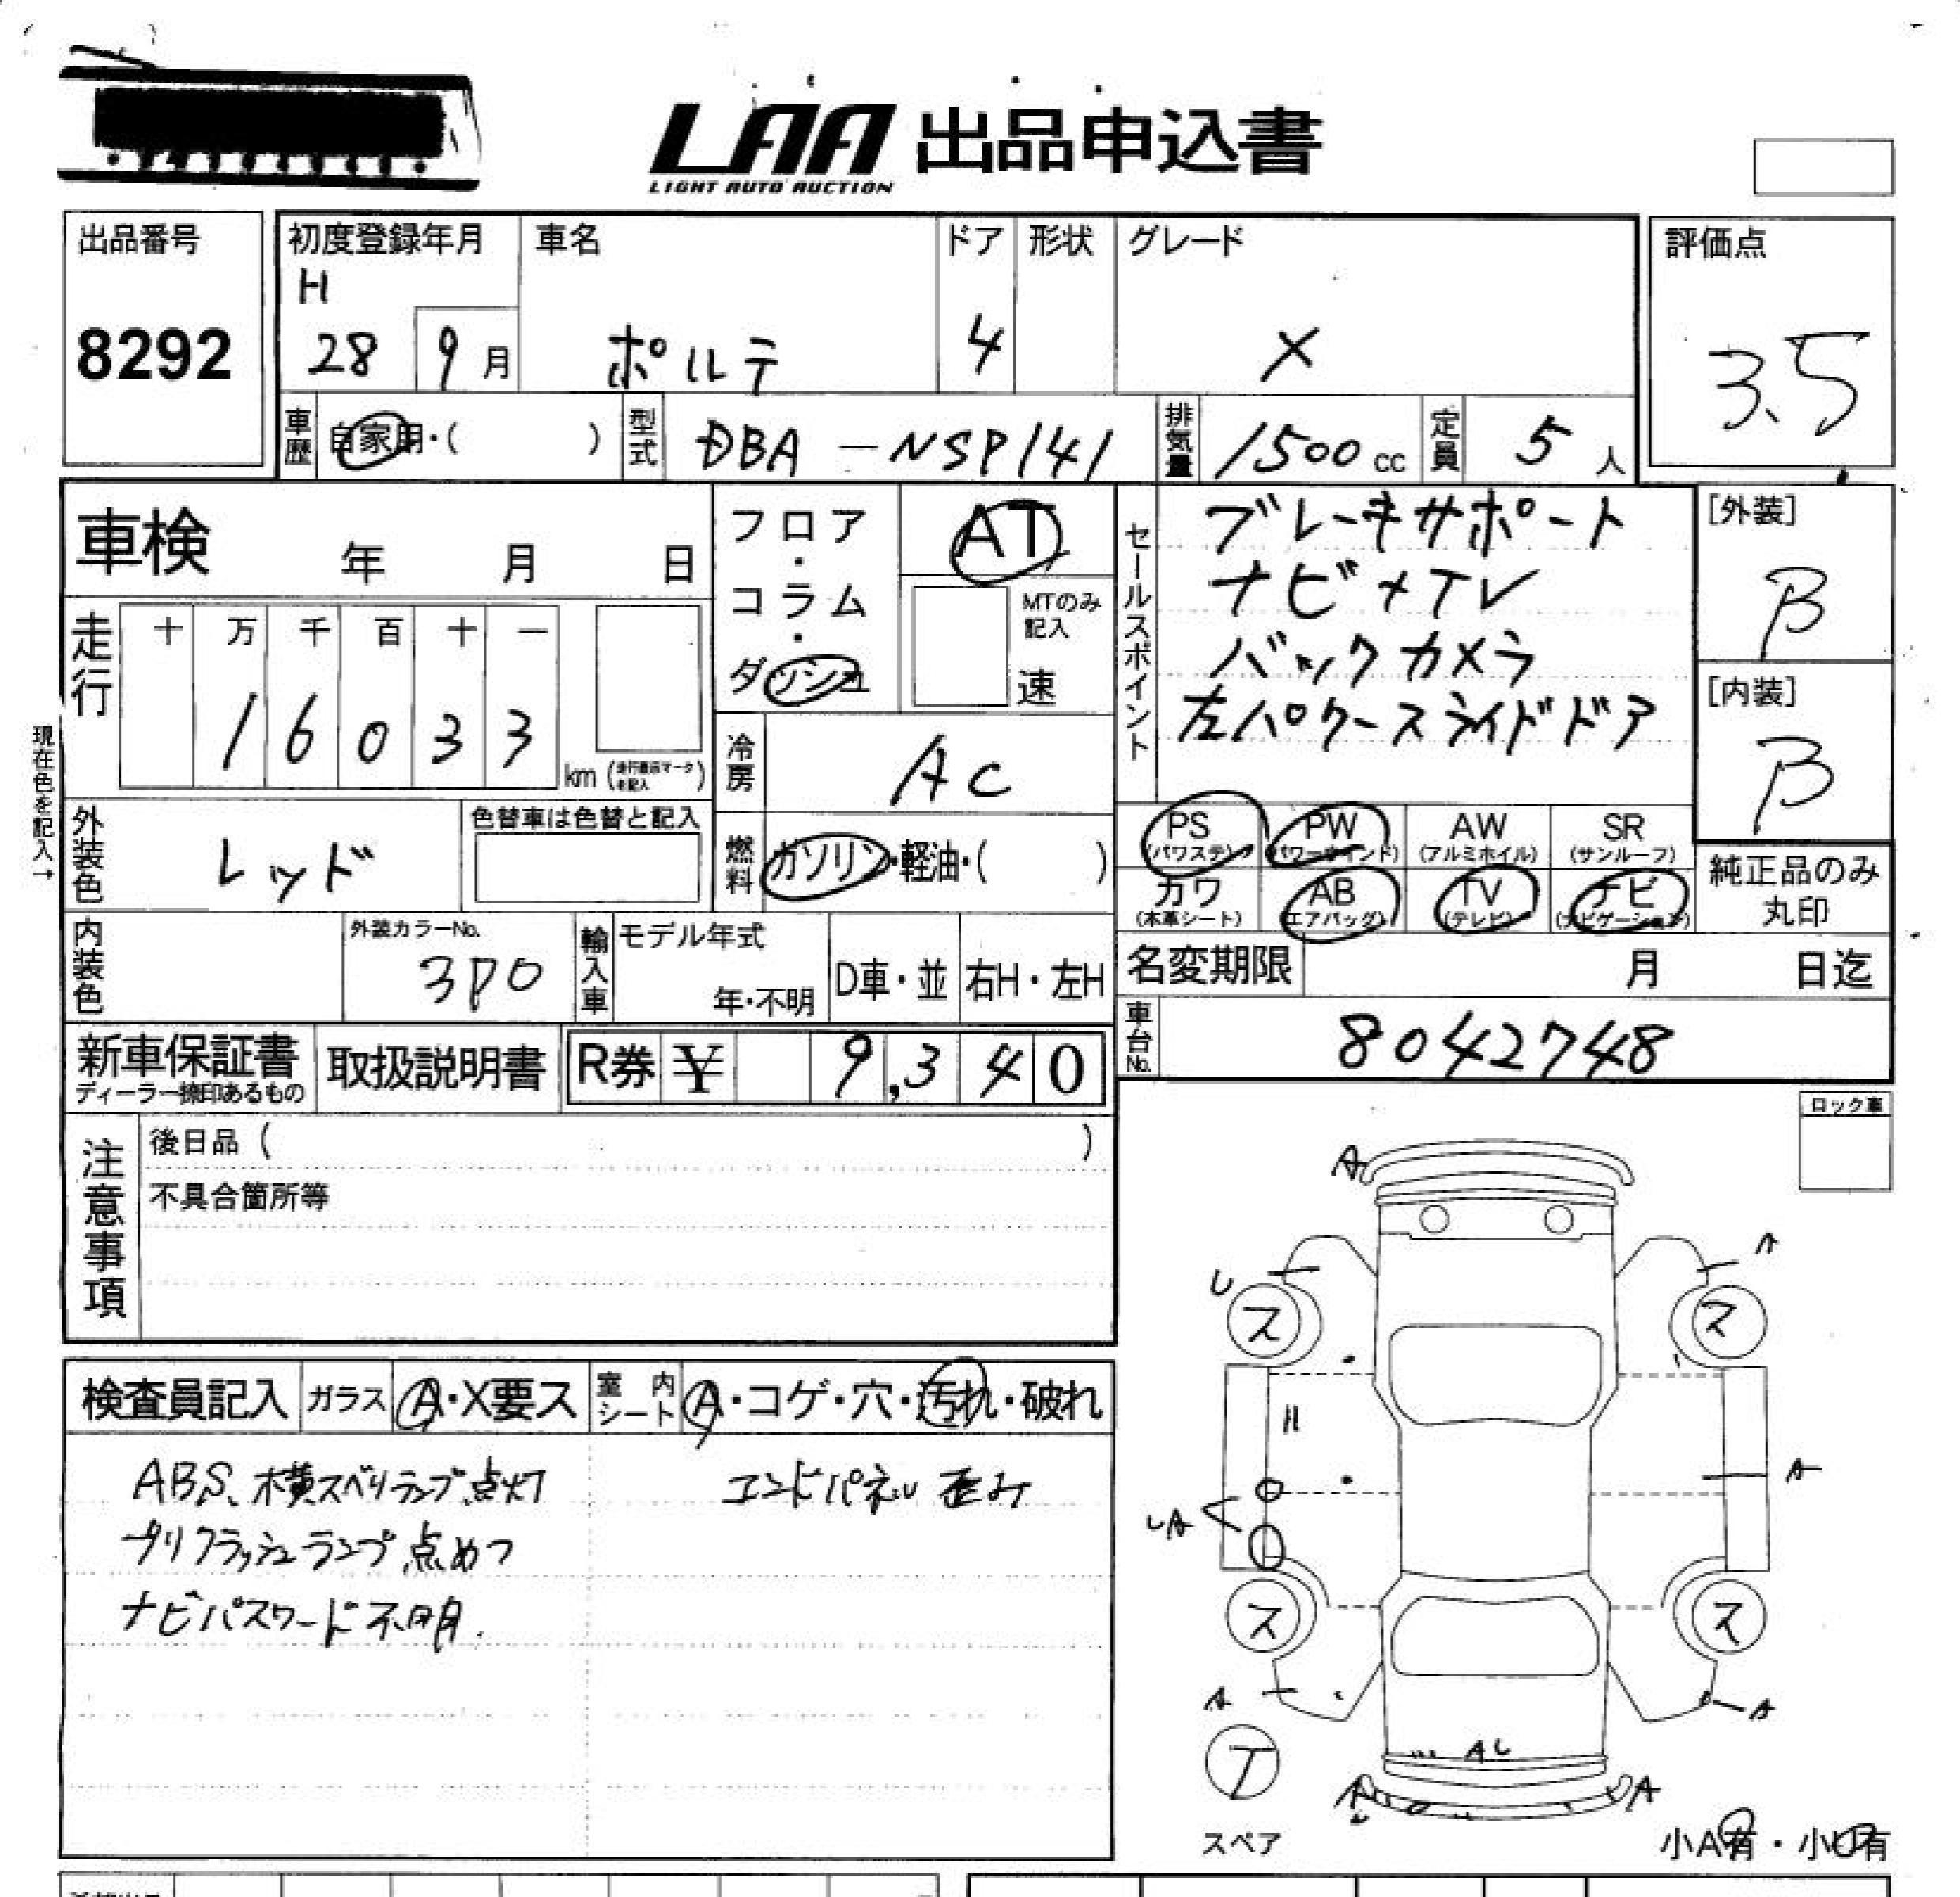 LAA 出品申込書
LIGHT AUTO AUCTION
出品番号
8292
初度登録年月
H
28 9月
車名
ポルテ
ドア
4
形状
グレード
X
評価点
3.5
車歴
自家用・( )
型式
DBA-NSP141
排気量
1500cc
定員
5人
車検 年 月 日
フロア・コラム・ダッシュ
AT
MTのみ記入
速
セールスポイント
ブレーキサポート
ナビ+TV
バックカメラ
左パワースライドドア
[外装]
B
[内装]
B
走行
十 万 千 百 十 一
1 6 0 3 3
km
現在色を記入→
冷房
AC
外装色
レッド
色替車は色替と記入
燃料
ガソリン・軽油・( )
PS (パワステ)
PW (パワーウインド)
AW (アルミホイル)
SR (サンルーフ)
カワ (本革シート)
AB (エアバッグ)
TV (テレビ)
ナビ (ナビゲーション)
純正品のみ
丸印
内装色
外装カラーNo.
3P0
輸入車
モデル年式
年・不明
D車・並
右H・左H
名変期限 月 日迄
車台No.
8042748
新車保証書
ディーラー捺印あるもの
取扱説明書
R券 ¥ 9,340
ロック車
注意事項
後日品 ( )
不具合箇所等
検査員記入
ガラス
A・X要ス
室内シート
A・コゲ・穴・汚れ・破れ
ABS、横スベリランプ点灯
エンドパネル 歪み
プリクラッシュランプ点めつ
ナビパスワード不明.
A
A
U
ス
ス
A
UA
ス
ス
A
A
AU
T
A
A
スペア
小A有・小U有